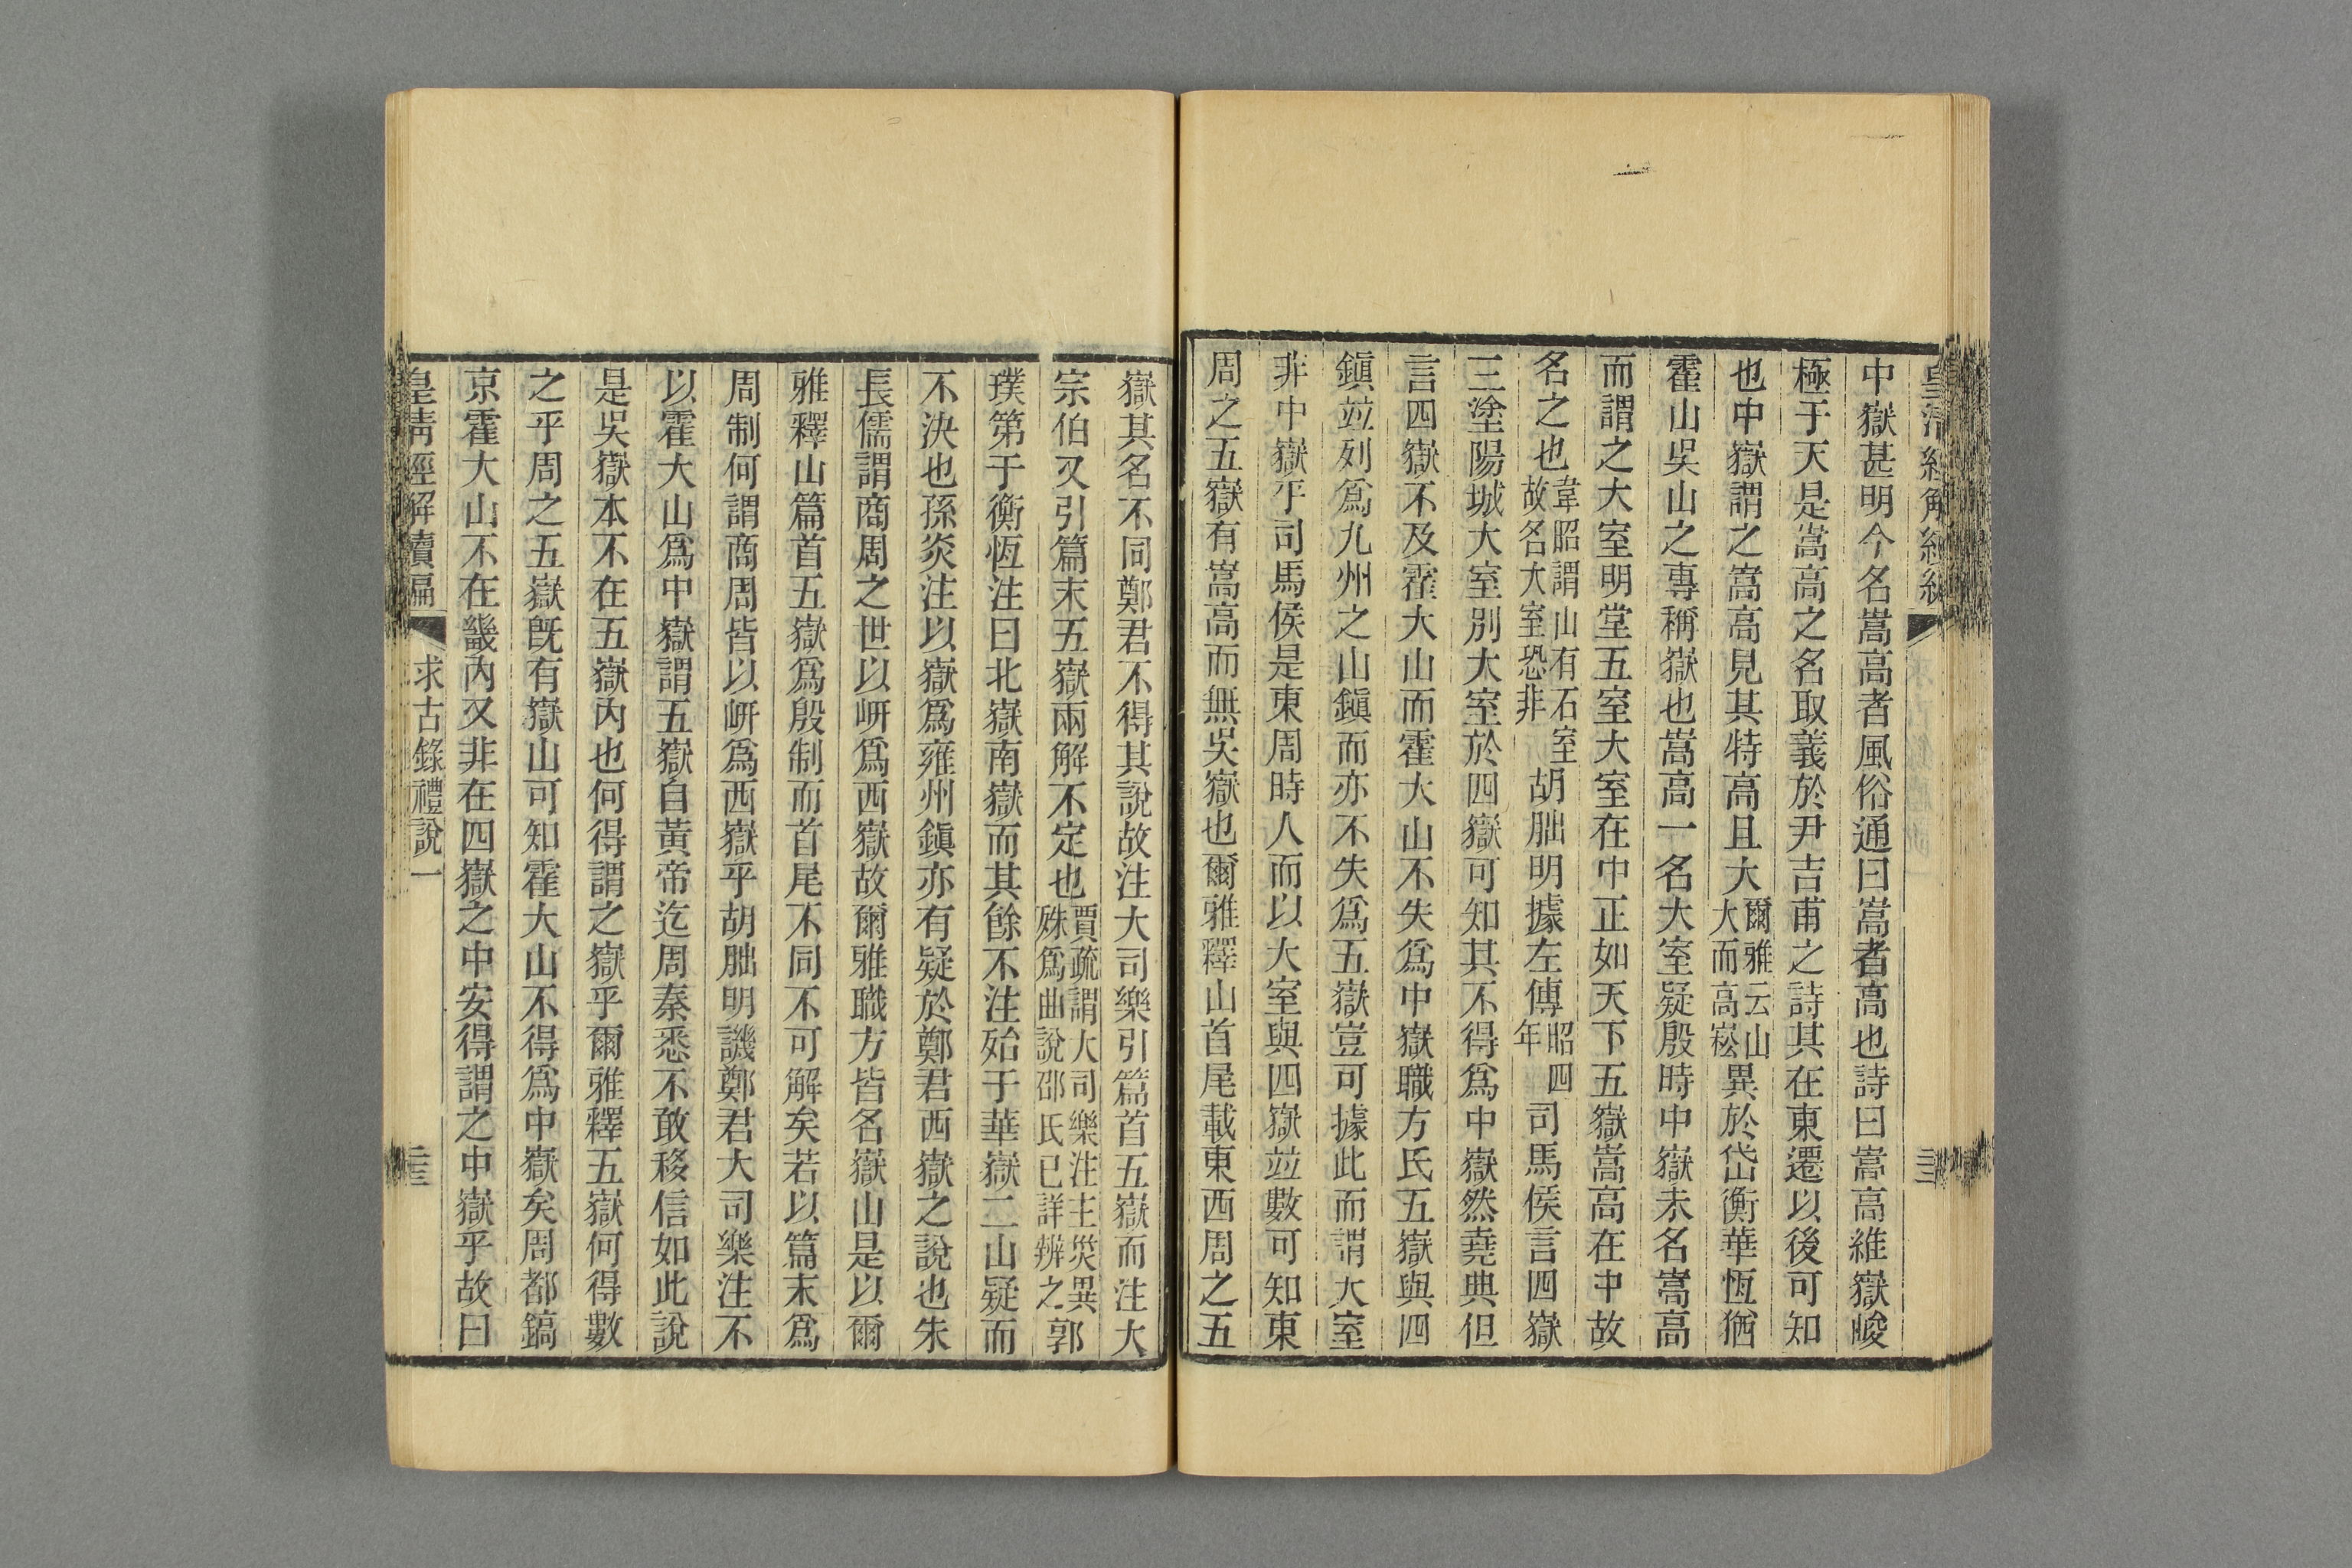 中嶽甚明今名嵩高者風俗通曰嵩者高也詩曰嵩高維嶽峻
極于天是嵩高之名取義於尹吉甫之詩其在東遷以後可知
也中嶽謂之嵩高見其特高且大爾雅云山大而高崧異於岱衡華恆猶
霍山吳山之專稱嶽也嵩高一名大室疑殷時中嶽未名嵩高
而謂之大室明堂五室大室在中正如天下五嶽嵩高在中故
名之也韋昭謂山有石室故名大室恐非胡朏明據左傳昭四年司馬侯言四嶽
三塗陽城大室別大室於四嶽可知其不得爲中嶽然堯典但
言四嶽不及霍大山而霍大山不失爲中嶽職方氏五嶽與四
鎭竝列爲九州之山鎭而亦不失爲五嶽豈可據此而謂大室
非中嶽乎司馬侯是東周時人而以大室與四嶽竝數可知東
周之五嶽有嵩高而無吳嶽也爾雅釋山首尾載東西周之五
嶽其名不同鄭君不得其說故注大司樂引篇首五嶽而注大
宗伯又引篇末五嶽兩解不定也賈疏謂大司樂注主災異殊爲曲說邵氏已詳辨之郭
璞第于衡恆注曰北嶽南嶽而其餘不注殆于華嶽二山疑而
不決也孫炎注以嶽爲雍州鎭亦有疑於鄭君西嶽之說也朱
長儒謂商周之世以岍爲西嶽故爾雅職方皆名嶽山是以爾
雅釋山篇首五嶽爲殷制而首尾不同不可解矣若以篇末爲
周制何謂商周皆以岍爲西嶽乎胡朏明譏鄭君大司樂注不
以霍大山爲中嶽謂五嶽自黃帝迄周秦悉不敢移信如此說
是吳嶽本不在五嶽內也何得謂之嶽乎爾雅釋五嶽何得數
之乎周之五嶽旣有嶽山可知霍大山不得爲中嶽矣周都鎬
京霍大山不在畿內又非在四嶽之中安得謂之中嶽乎故曰
皇清經解續編 求古錄禮說一